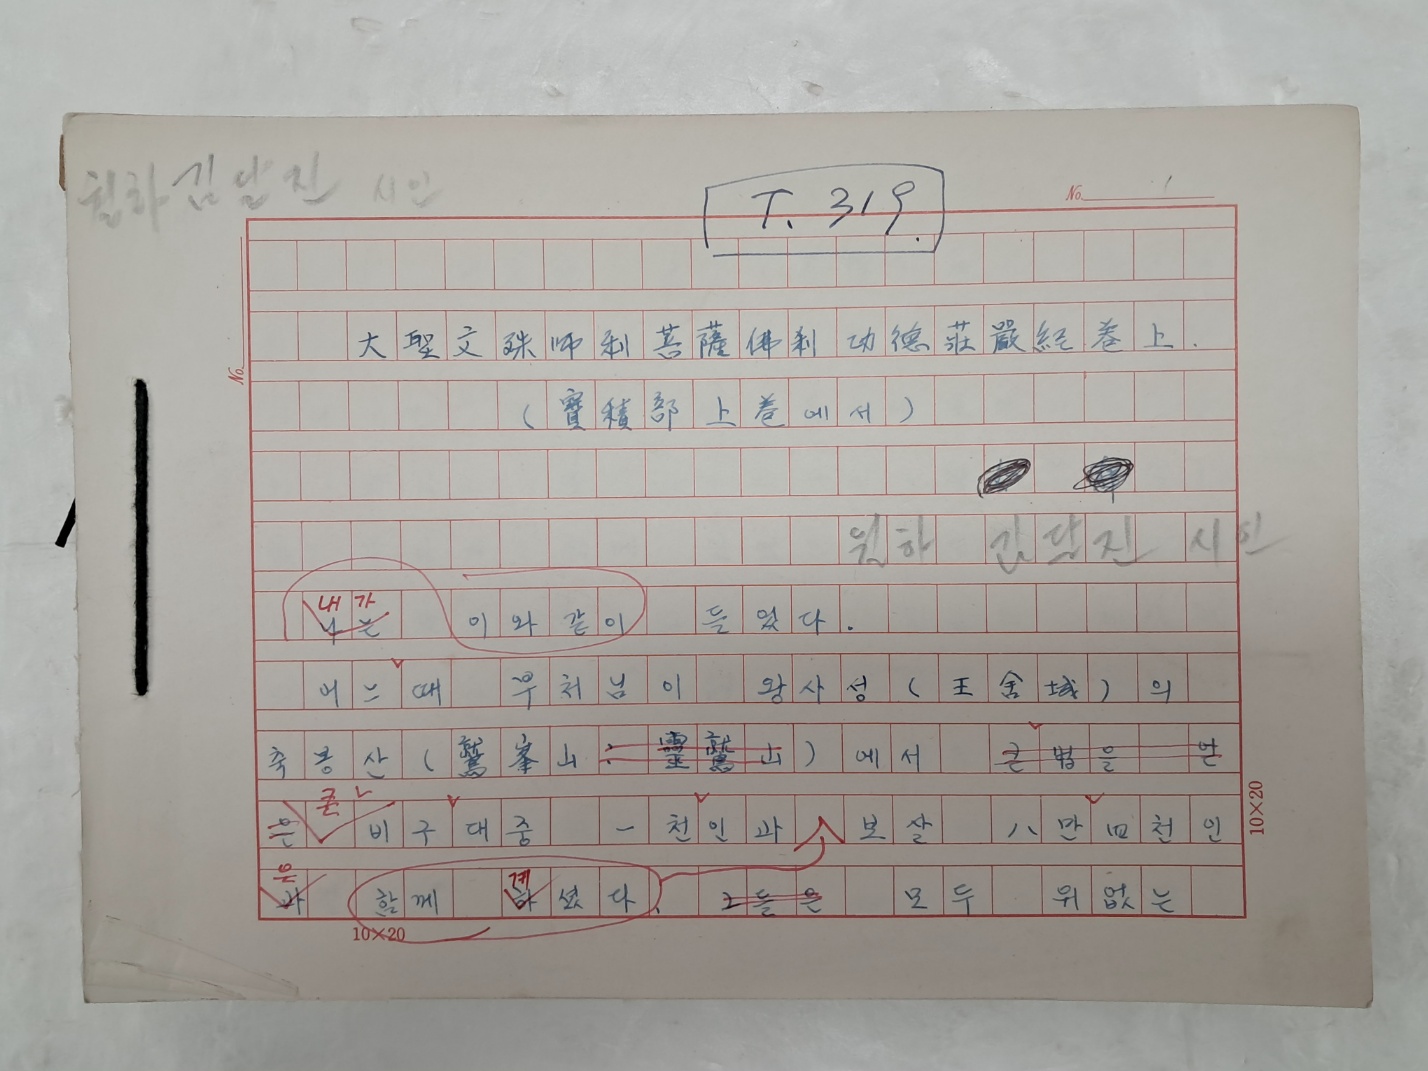 월하 김달진 시인
T. 319.
No. 1
No.
大聖文殊師利菩薩佛刹 功德莊嚴經卷上.
(寶積部上卷에서)
월하 김달진 시인
내가
나는 이와같이 들었다.
어느때 부처님이 왕사성(王舍城)의
축봉산(鷲峯山: 靈鷲山)에서 큰법을
큰
비구대중 一천인과 보살 八만四천인
은
계
과 함께 하셨다. 그들은 모두 위없는
10×20
10×20